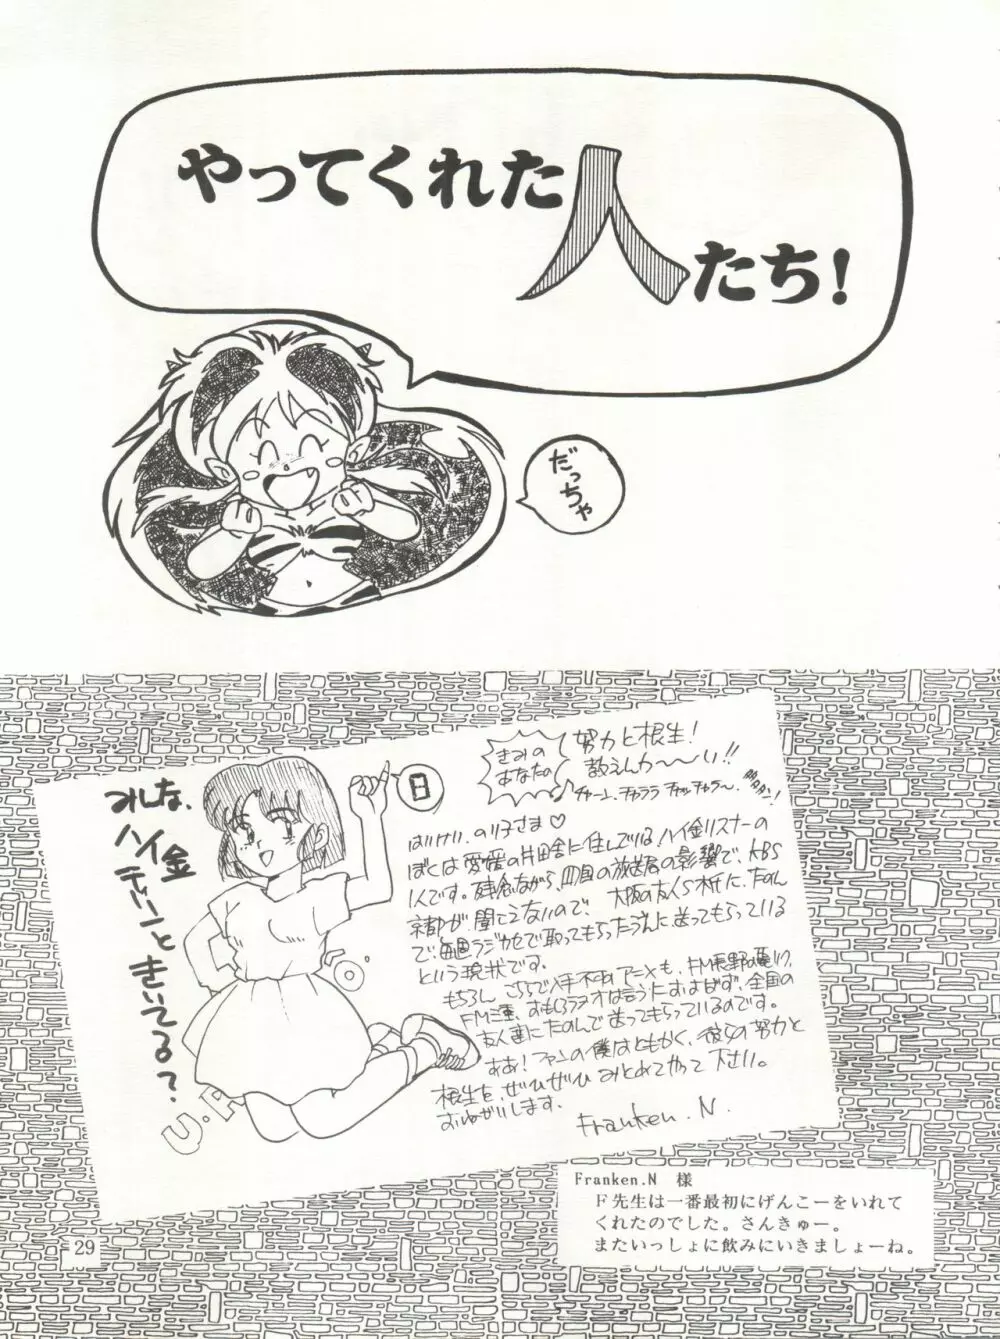 やってくれた人たち!
だっちゃ
みんな、
ハイ金
きいてる?
日
きみの
あなたの
努力と根性!
教えんかーい!!
はいけい、のり子さま♡
ぼくは愛媛の片田舎に住んでいる、ハイ金リスナーの
1人です。残念ながら、四国の放送局の影響で、KBS
京都が聞こえないので、大阪の友人に
で、毎週ラジカセで取ってもらったうえに送ってもらっている
という現状です。
もちろん、こちらで入手不可のアニメも、FM長野の
FM三重、おもしろラジオは言うにおよばず、全国の
友人達にたのんで送ってもらっているのです。
ああ!ファンの僕はともかく、彼女の努力と
根性を、ぜひぜひみとめてやって下さい。
おねがいします。
Franken.N.
U.P.
Franken.N 様
F先生は一番最初にげんこーをいれて
くれたのでした。さんきゅー。
またいっしょに飲みにいきましょーね。
29